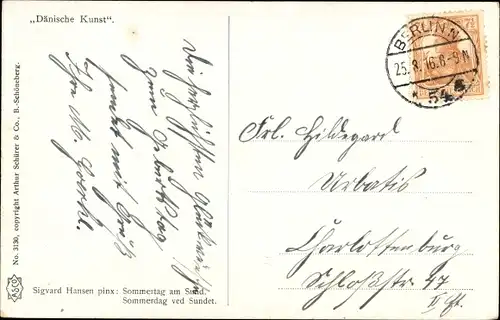 „Dänische Kunst".
No. 3130, copyright Arthur Schürer & Co., B.-Schöneberg.
Die herzlichsten Glückwünsche
zum Geburtstag
sendet mit Gruß
Ihre M.
Sigvard Hansen pinx: Sommertag am Sund.
Sommerdag ved Sundet.
BERLIN N.
25.8.16.8-9N
* 54
7½
Frl. Hildegard
Urbatis
Charlottenburg
Schloßstr. 47